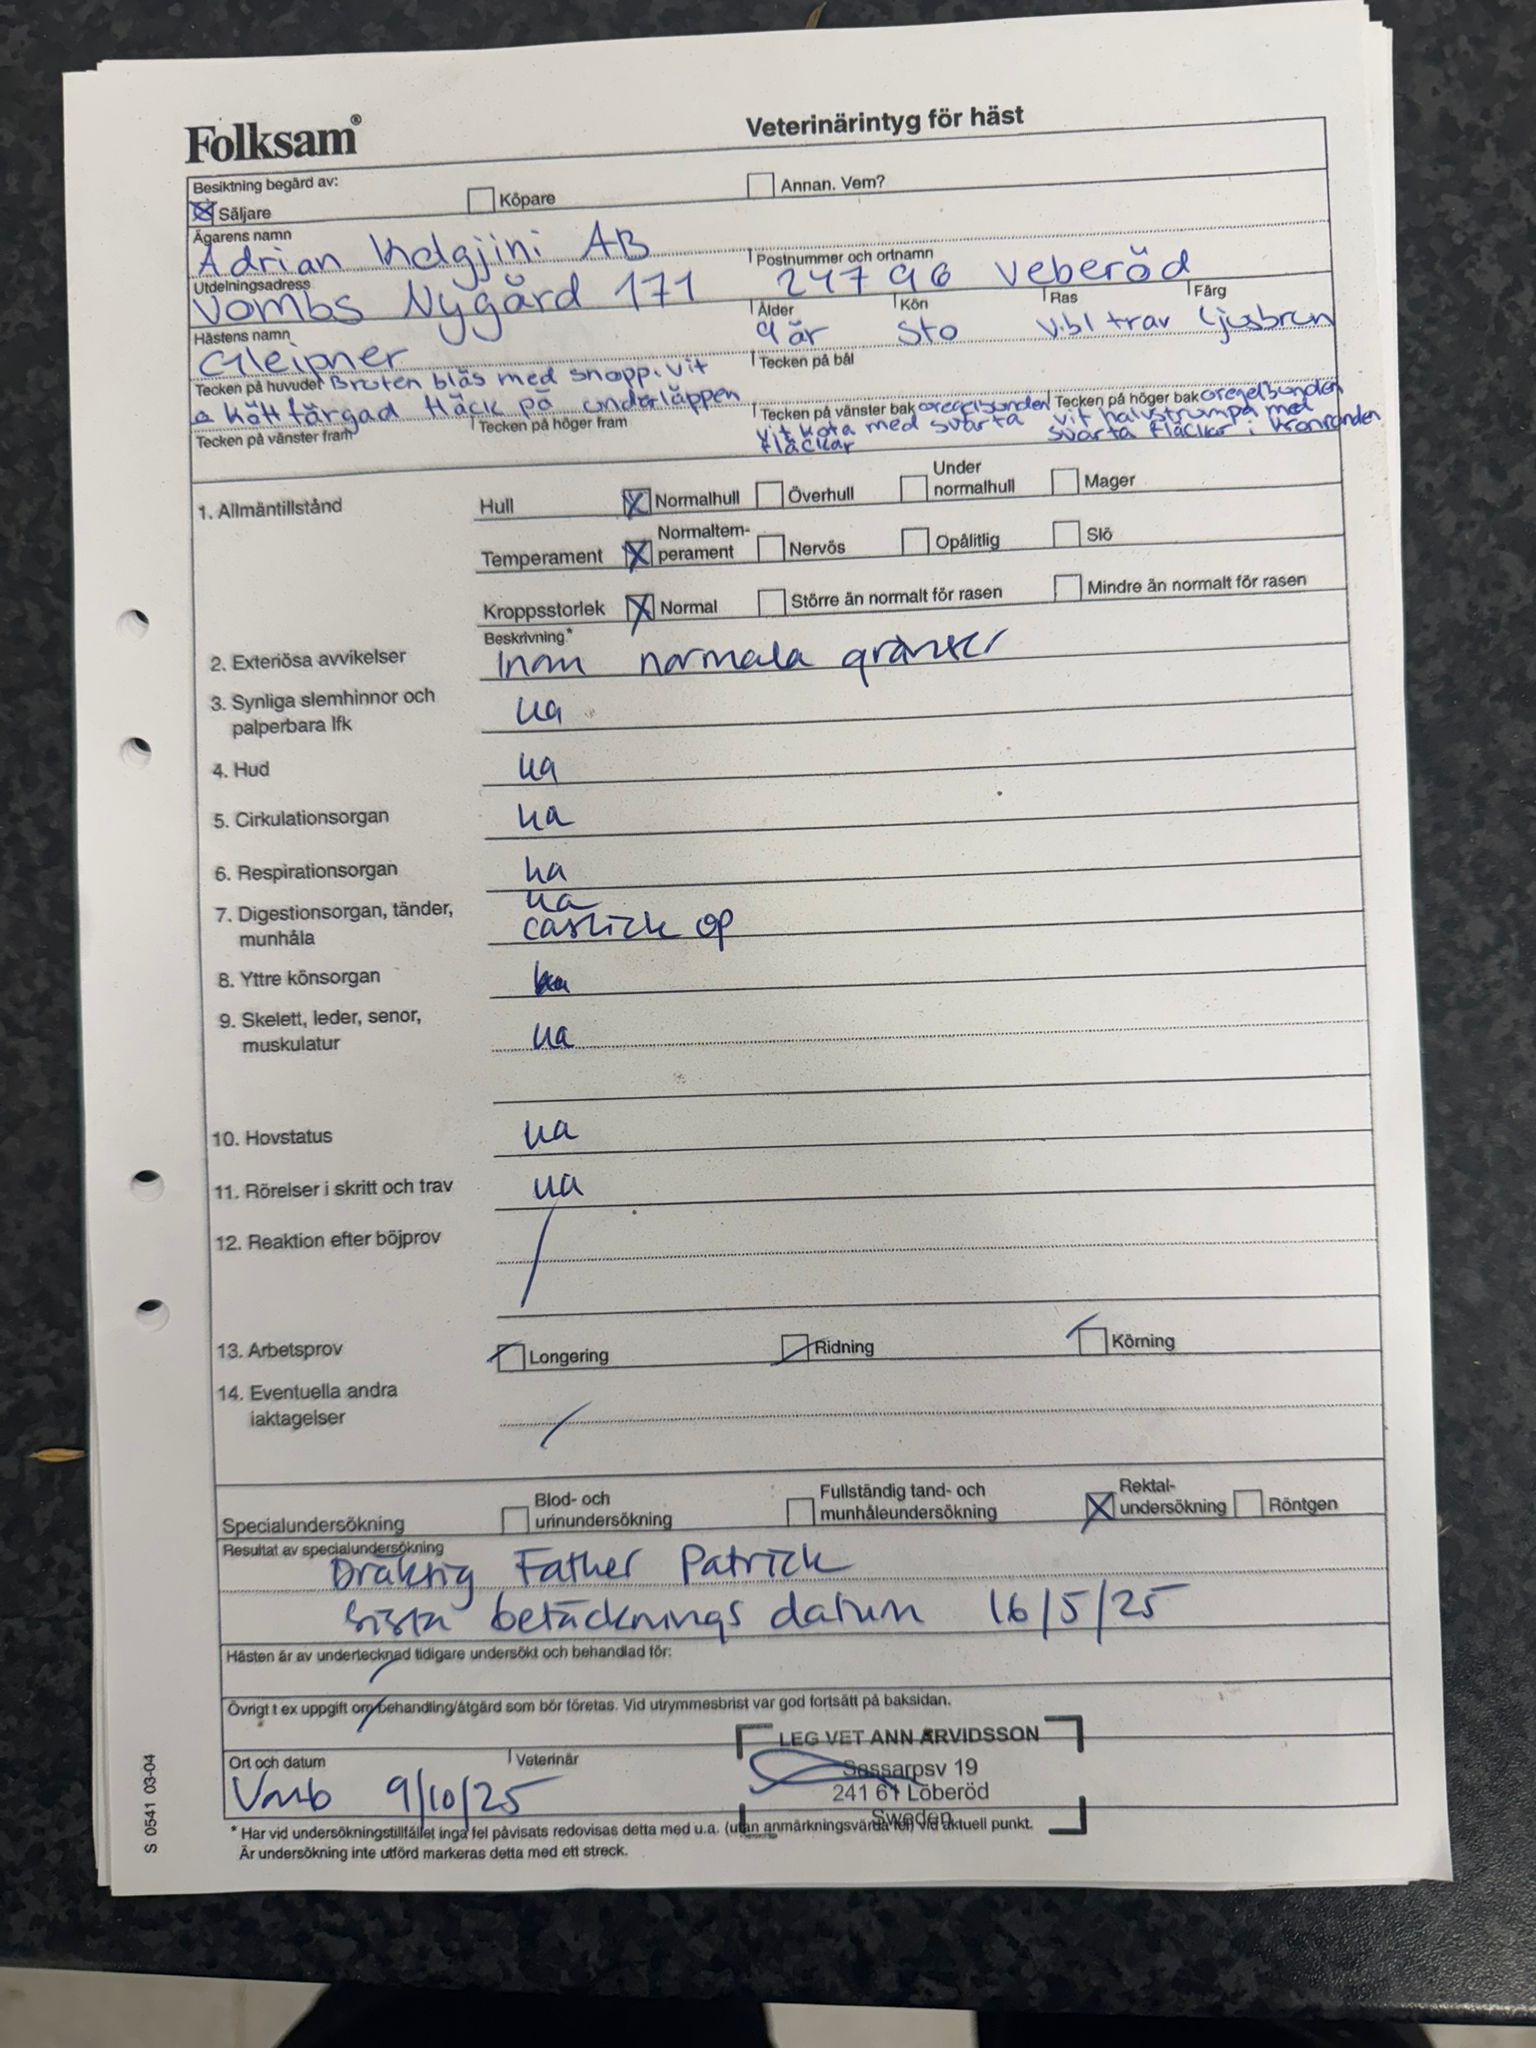 Folksam®
Veterinärintyg för häst
Besiktning begärd av:
Säljare Köpare Annan. Vem?
Ägarens namn
Adrian Kolgjini AB
Utdelningsadress Postnummer och ortnamn
Vombs Nygård 171 247 96 Veberöd
Hästens namn Ålder Kön Ras Färg
Gleipner 9 år Sto V.bl trav Ljusbrun
Tecken på huvudet Bruten bläs med snopp. vit
& köttfärgad fläck på underläppen
Tecken på bål
Tecken på vänster fram Tecken på höger fram
Tecken på vänster bak oregelbunden
vit kota med svarta
fläckar
Tecken på höger bak oregelbunden
vit halvstrumpa med
svarta fläckar i kronranden
1. Allmäntillstånd
Hull Normalhull Överhull Under normalhull Mager
Temperament Normaltem-perament Nervös Opålitlig Slö
Kroppsstorlek Normal Större än normalt för rasen Mindre än normalt för rasen
Beskrivning*
2. Exteriösa avvikelser Inom normala gränser
3. Synliga slemhinnor och
palperbara lfk ua
4. Hud ua
5. Cirkulationsorgan ua
6. Respirationsorgan ua
7. Digestionsorgan, tänder, ua
munhåla caslick op
8. Yttre könsorgan
9. Skelett, leder, senor,
muskulatur ua
10. Hovstatus ua
11. Rörelser i skritt och trav ua
12. Reaktion efter böjprov
13. Arbetsprov Longering Ridning Körning
14. Eventuella andra
iaktagelser
Specialundersökning Blod- och urinundersökning Fullständig tand- och munhåleundersökning Rektal-undersökning Röntgen
Resultat av specialundersökning
Dräktig Father Patrick
sista betäcknings datum 16/5/25
Hästen är av undertecknad tidigare undersökt och behandlad för:
Övrigt t ex uppgift om behandling/åtgärd som bör företas. Vid utrymmesbrist var god fortsätt på baksidan.
Ort och datum Veterinär
Vomb 9/10/25
LEG VET ANN ARVIDSSON
Sassarpsv 19
241 61 Löberöd
Sweden
* Har vid undersökningstillfället inga fel påvisats redovisas detta med u.a. (utan anmärkningsvärda fel) vid aktuell punkt.
Är undersökning inte utförd markeras detta med ett streck.
S 0541 03-04